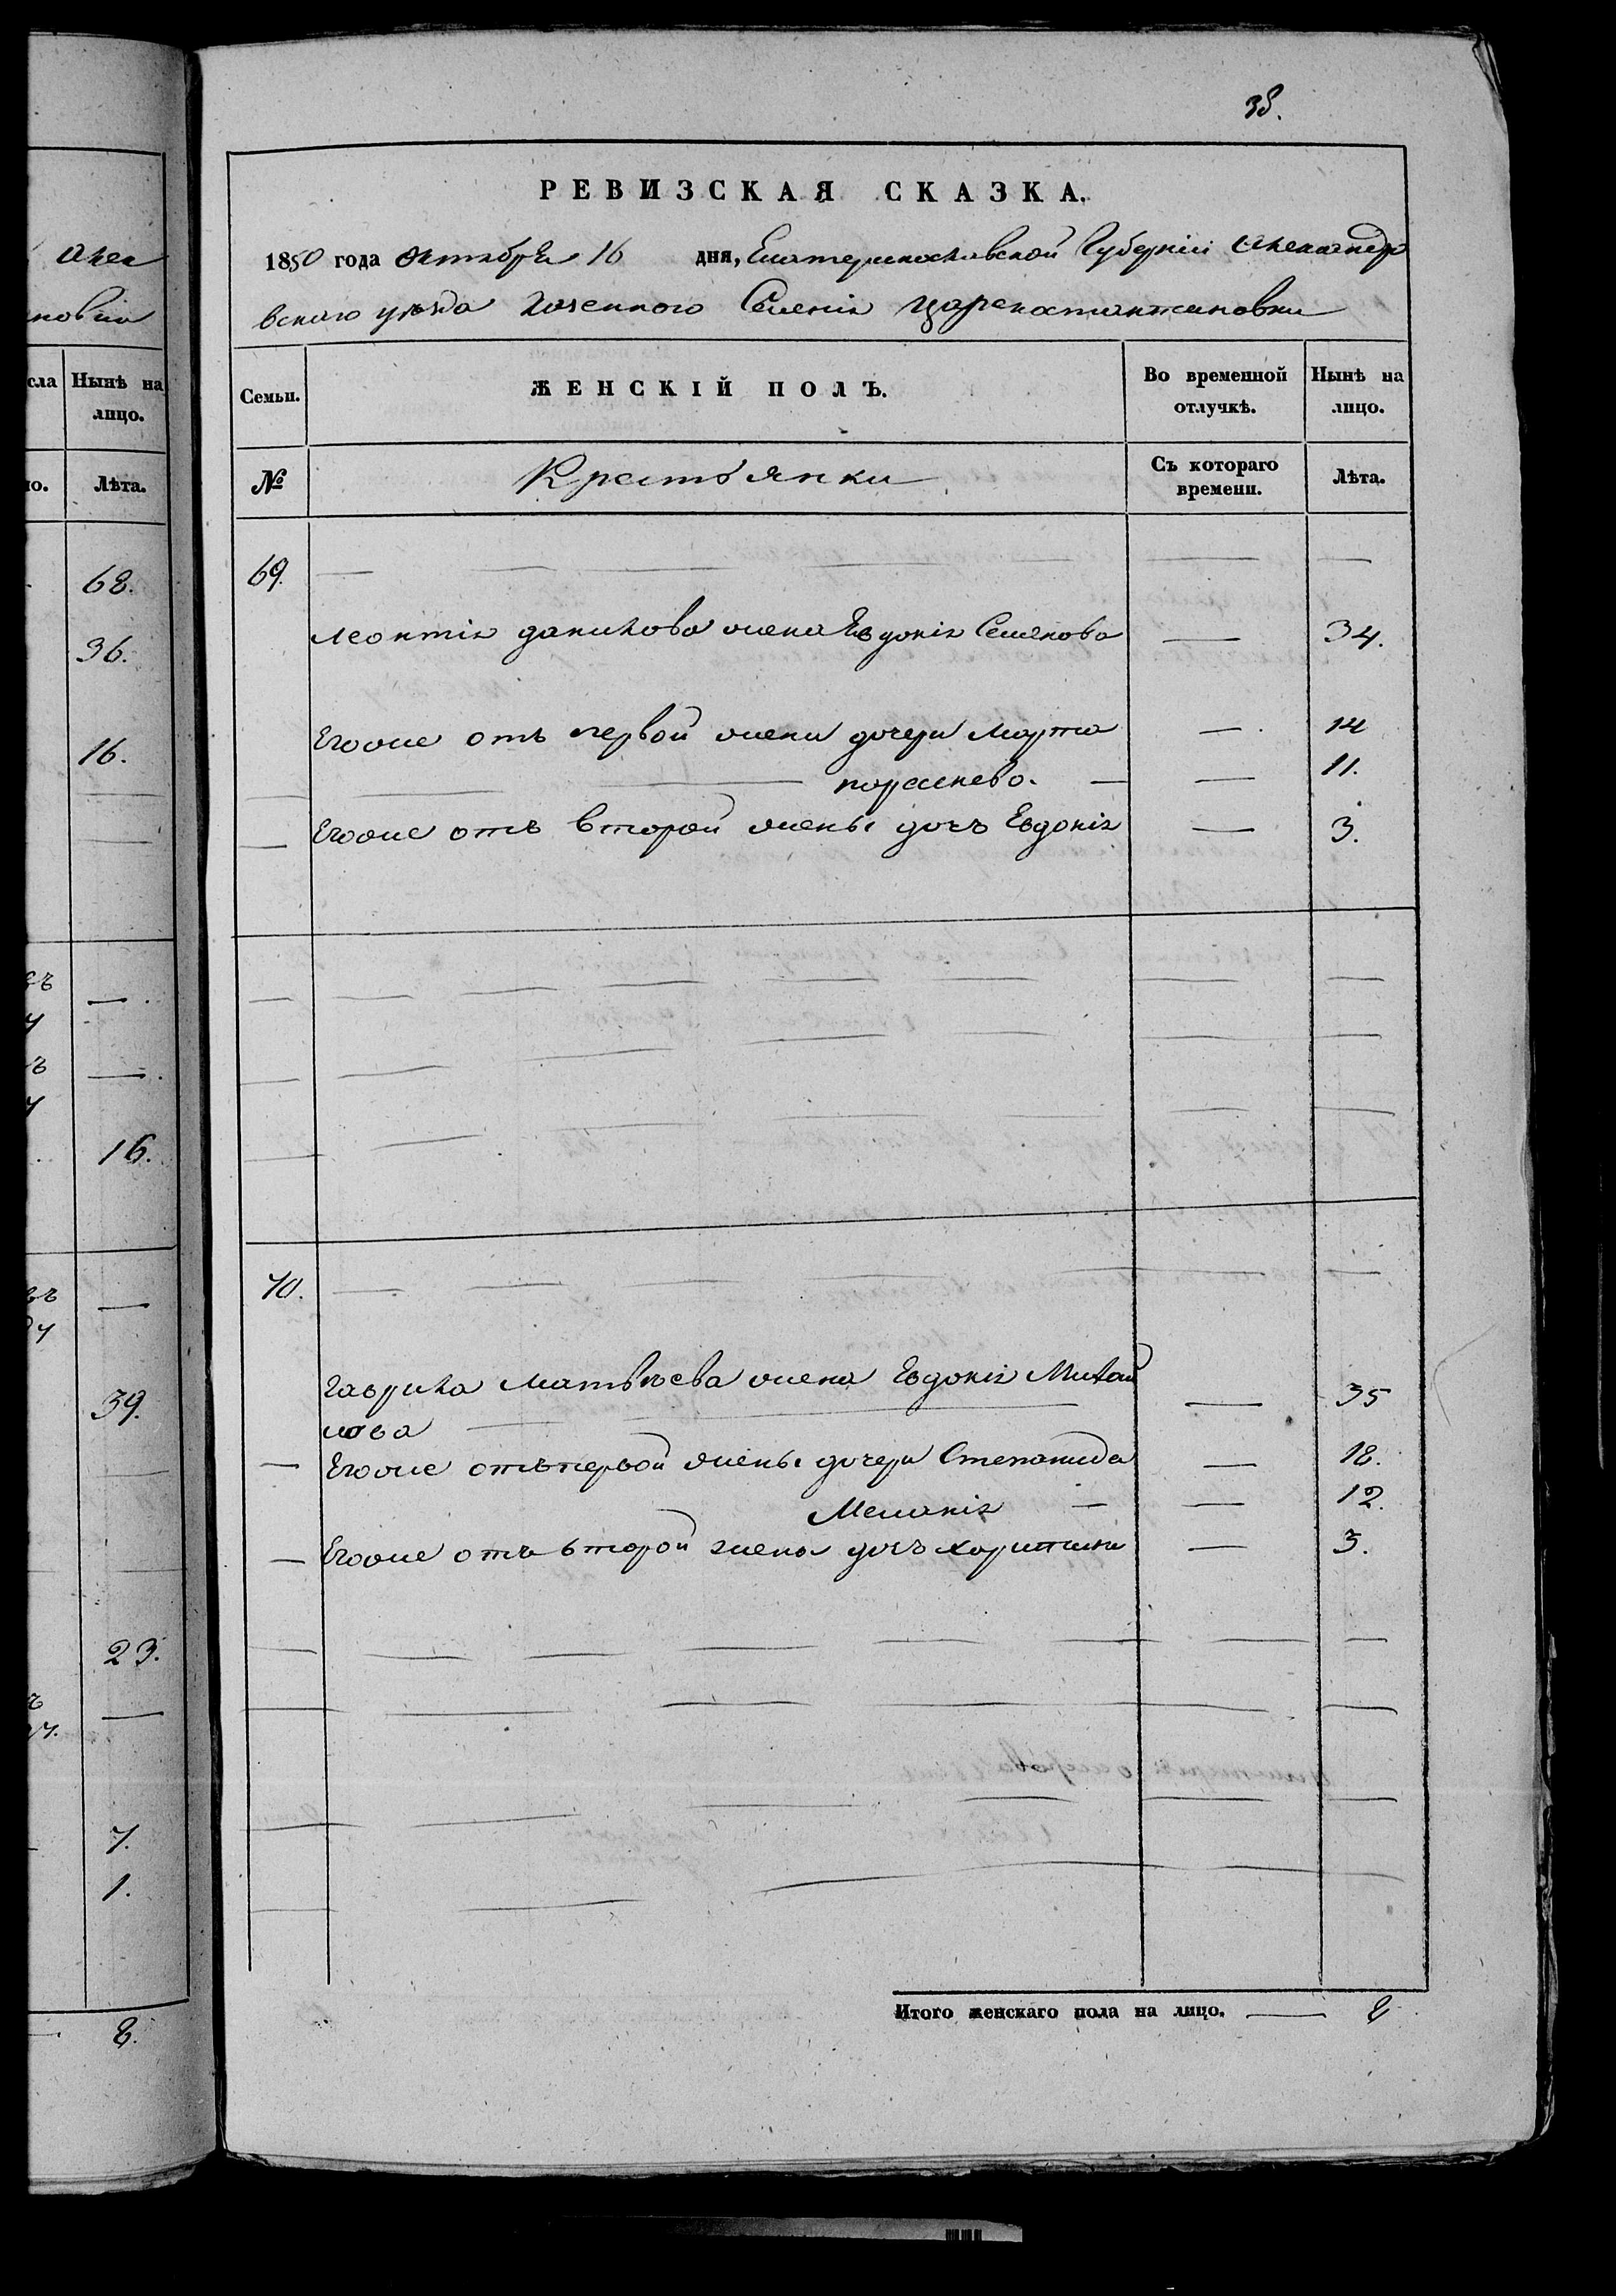 38.
РЕВИЗСКАЯ СКАЗКА.
1850 года октября 16 дня, Екатеринославской Губерніи Александро
вскаго уѣзда Казенного Селенія Цареконстантиновки
Семьи. ЖЕНСКІЙ ПОЛЪ. Во временной отлучкѣ. Нынѣ на лицо.
№ Крестьянки Съ котораго времени. Лѣта.
69.
Леонтія данилова жена Евдокія Семенова — 34.
Егоже отъ первой жены дочери Марфа — 14
— 11.
Егоже отъ второй жены дочь Евдокія — 3.
70.
Гаврила Матвѣева жена Евдокія Михай
лова — 35
Егоже отъ первой жены дочери Степанида — 18.
Меланія — 12.
Егоже отъ второй жены дочь харитина — 3.
Итого женскаго пола на лицо. — 8
Нынѣ на
лицо.
Лѣта.
68.
36.
16.
16.
39.
23.
7.
1.
8.